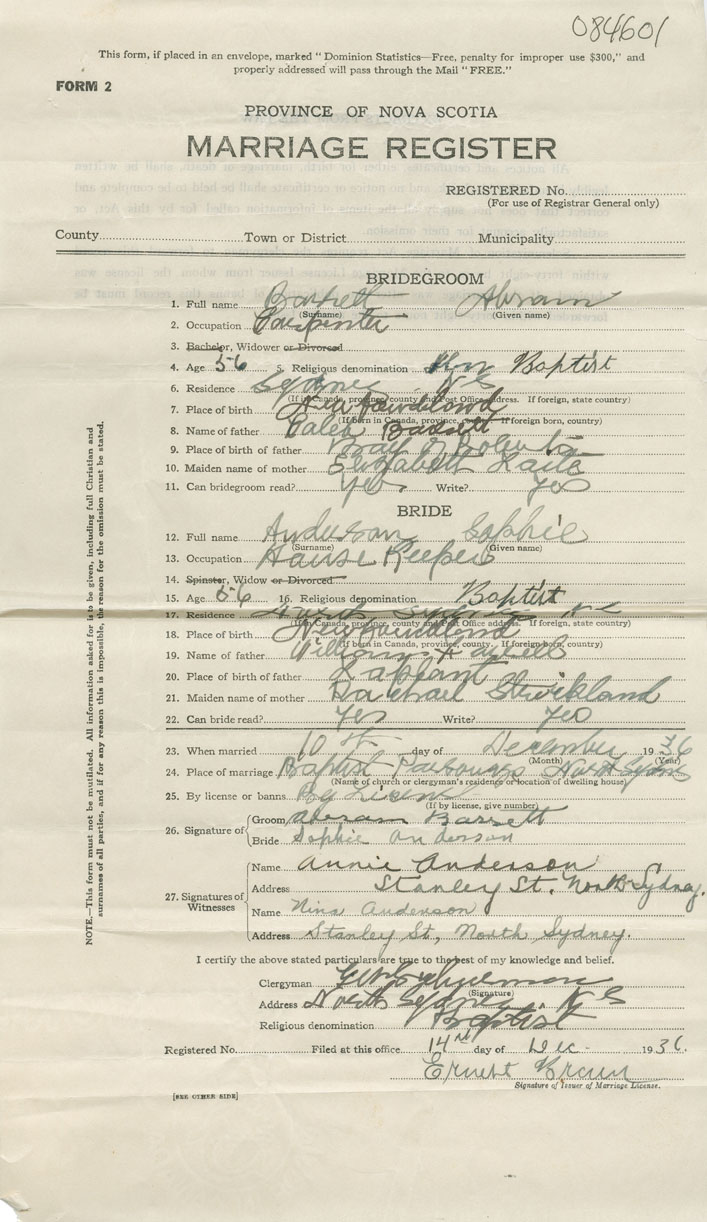 084601
This form, if placed in an envelope, marked "Dominion Statistics—Free, penalty for improper use $300," and
properly addressed will pass through the Mail "FREE."
FORM 2
PROVINCE OF NOVA SCOTIA
MARRIAGE REGISTER
REGISTERED No.
(For use of Registrar General only)
County Town or District Municipality
BRIDEGROOM
1. Full name Barrett Abram
(Surname) (Given name)
2. Occupation Carpenter
3. Bachelor, Widower or Divorced
4. Age 56 5. Religious denomination Baptist
6. Residence Sydney N S
(If in Canada, province, county and Post Office address. If foreign, state country)
7. Place of birth Newfoundland
(If born in Canada, province, county. If foreign born, country)
8. Name of father Caleb Barrett
9. Place of birth of father
10. Maiden name of mother Elizabeth
11. Can bridegroom read? Yes Write? Yes
BRIDE
12. Full name Anderson Sophie
(Surname) (Given name)
13. Occupation House Keeper
14. Spinster, Widow or Divorced
15. Age 56 16. Religious denomination Baptist
17. Residence North Sydney N S
(If in Canada, province, county and Post Office address. If foreign, state country)
18. Place of birth Newfoundland
(If born in Canada, province, county. If foreign born, country)
19. Name of father William
20. Place of birth of father
21. Maiden name of mother Rachael Strickland
22. Can bride read? Yes Write? Yes
23. When married 10th day of December 1936
(Month) (Year)
24. Place of marriage Baptist Parsonage North Sydney
(Name of church or clergyman's residence or location of dwelling house)
25. By license or banns By License
(If by license, give number)
26. Signature of Groom Abram Barrett
Bride Sophie Anderson
27. Signatures of Witnesses
Name Annie Anderson
Address Stanley St. North Sydney.
Name Nina Anderson
Address Stanley St., North Sydney.
I certify the above stated particulars are true to the best of my knowledge and belief.
Clergyman
(Signature)
Address North Sydney N S
Religious denomination Baptist
Registered No. Filed at this office 14th day of Dec. 1936.
Ernest
Signature of Issuer of Marriage License.
[SEE OTHER SIDE]
NOTE.—This form must not be mutilated. All information asked for is to be given, including full Christian and
surnames of all parties, and if for any reason this is impossible, the reason for the omission must be stated.